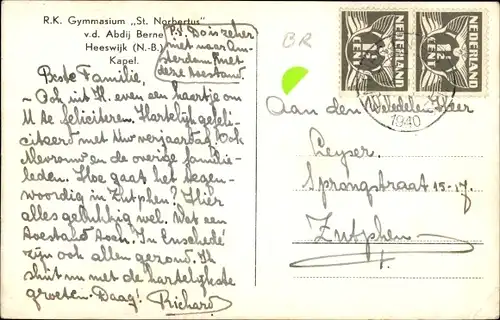 R.K. Gymnasium „St. Norbertus"
v.d. Abdij Berne
Heeswijk (N.-B.)
Kapel.
P.S. Do is zeker
niet naar Am-
sterdam, met
deze toestand.
Beste Familie,
- Ook uit H. even een kaartje om
U te feliciteren. Hartelijk gefeli-
citeerd met Uw verjaardag! Ook
Mevrouw en de overige familie-
leden. Hoe gaat het tegen-
woordig in Zutphen? Hier
alles gelukkig wel. Wat een
toestand toch. In Enschede
zijn ook allen gezond. Ik
sluit nu met de hartelijkste
groeten. Daag! Richard
BR
NEDERLAND
NEDERLAND
1940
Aan den Weledelen Heer
Leyser.
Sprongstraat 15-17
Zutphen